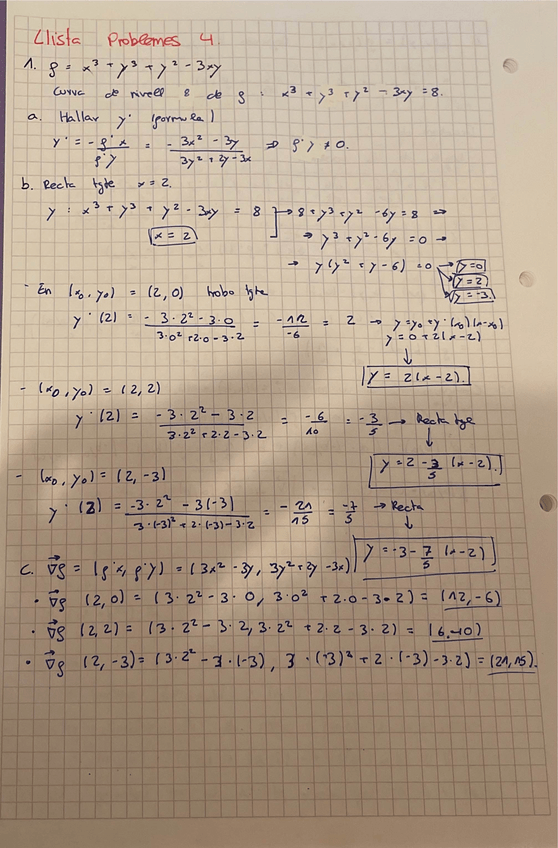 Llista Problemes 4.
1. f = x³ + y³ + y² - 3xy
Curva de nivell 8 de f : x³ + y³ + y² - 3xy = 8.
a. Hallar y' (formula)
y' = - f'x / f'y = - (3x² - 3y) / (3y² + 2y - 3x) ⇒ f'y ≠ 0.
b. Recta tgte x = 2.
y : x³ + y³ + y² - 3xy = 8 → 8 + y³ + y² - 6y = 8 ⇒
x = 2 ⇒ y³ + y² - 6y = 0 →
→ y(y² + y - 6) = 0 → y = 0
y = 2
y = -3.
- En (x₀, y₀) = (2, 0) trobo tgte
y'(2) = (- 3·2² - 3·0) / (3·0² + 2·0 - 3·2) = -12 / -6 = 2 → y = y₀ + y'(x₀)(x - x₀)
y = 0 + 2(x - 2)
↓
y = 2(x - 2).
- (x₀, y₀) = (2, 2)
y'(2) = (- 3·2² - 3·2) / (3·2² + 2·2 - 3·2) = -6 / 10 = -3/5 → Recta tgte
↓
y = 2 - 3/5 (x - 2).
- (x₀, y₀) = (2, -3)
y'(2) = (-3·2² - 3(-3)) / (3·(-3)² + 2·(-3) - 3·2) = - 21/15 = -7/5 → Recta
↓
y = -3 - 7/5 (x - 2)
c. ∇f = (f'x, f'y) = (3x² - 3y, 3y² + 2y - 3x)
• ∇f (2, 0) = (3·2² - 3·0, 3·0² + 2·0 - 3·2) = (12, -6)
• ∇f (2, 2) = (3·2² - 3·2, 3·2² + 2·2 - 3·2) = (6, 10)
• ∇f (2, -3) = (3·2² - 3·(-3), 3·(-3)² + 2·(-3) - 3·2) = (21, 15).